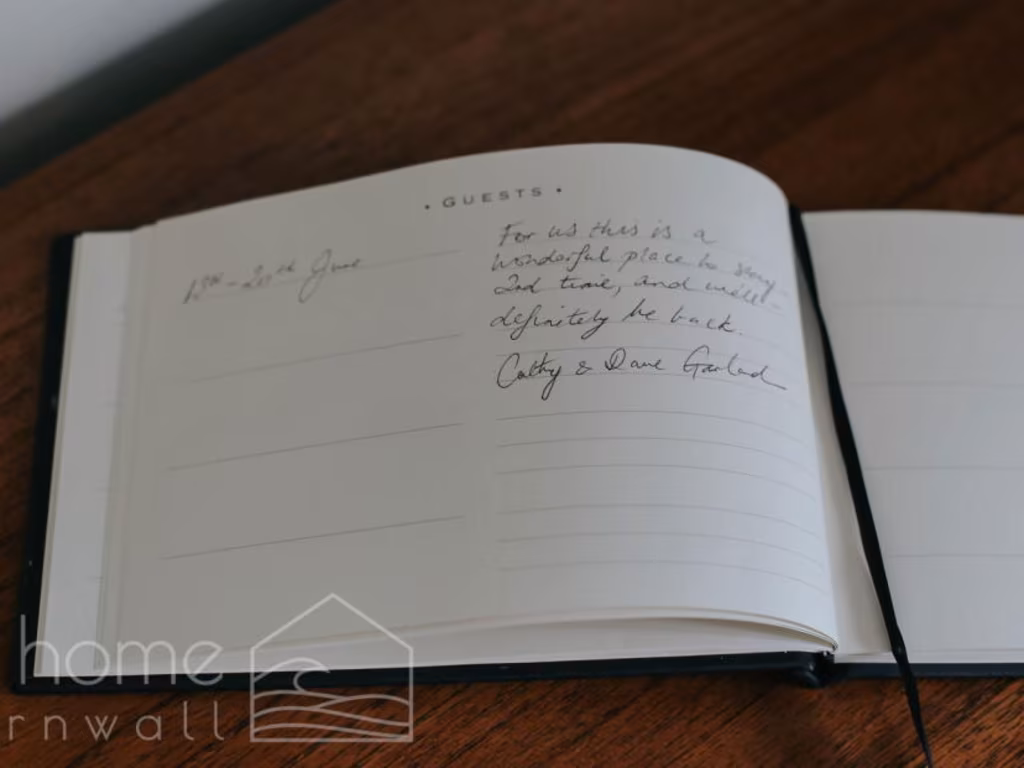 • GUESTS •
13th - 20th June
For us this is a
wonderful place to stay -
2nd time, and will
definitely be back.
Cathy & Dave Garland
home
rnwall